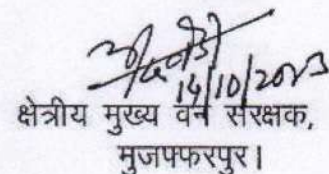 14/10/2023
क्षेत्रीय मुख्य वन संरक्षक,
मुजफ्फरपुर।